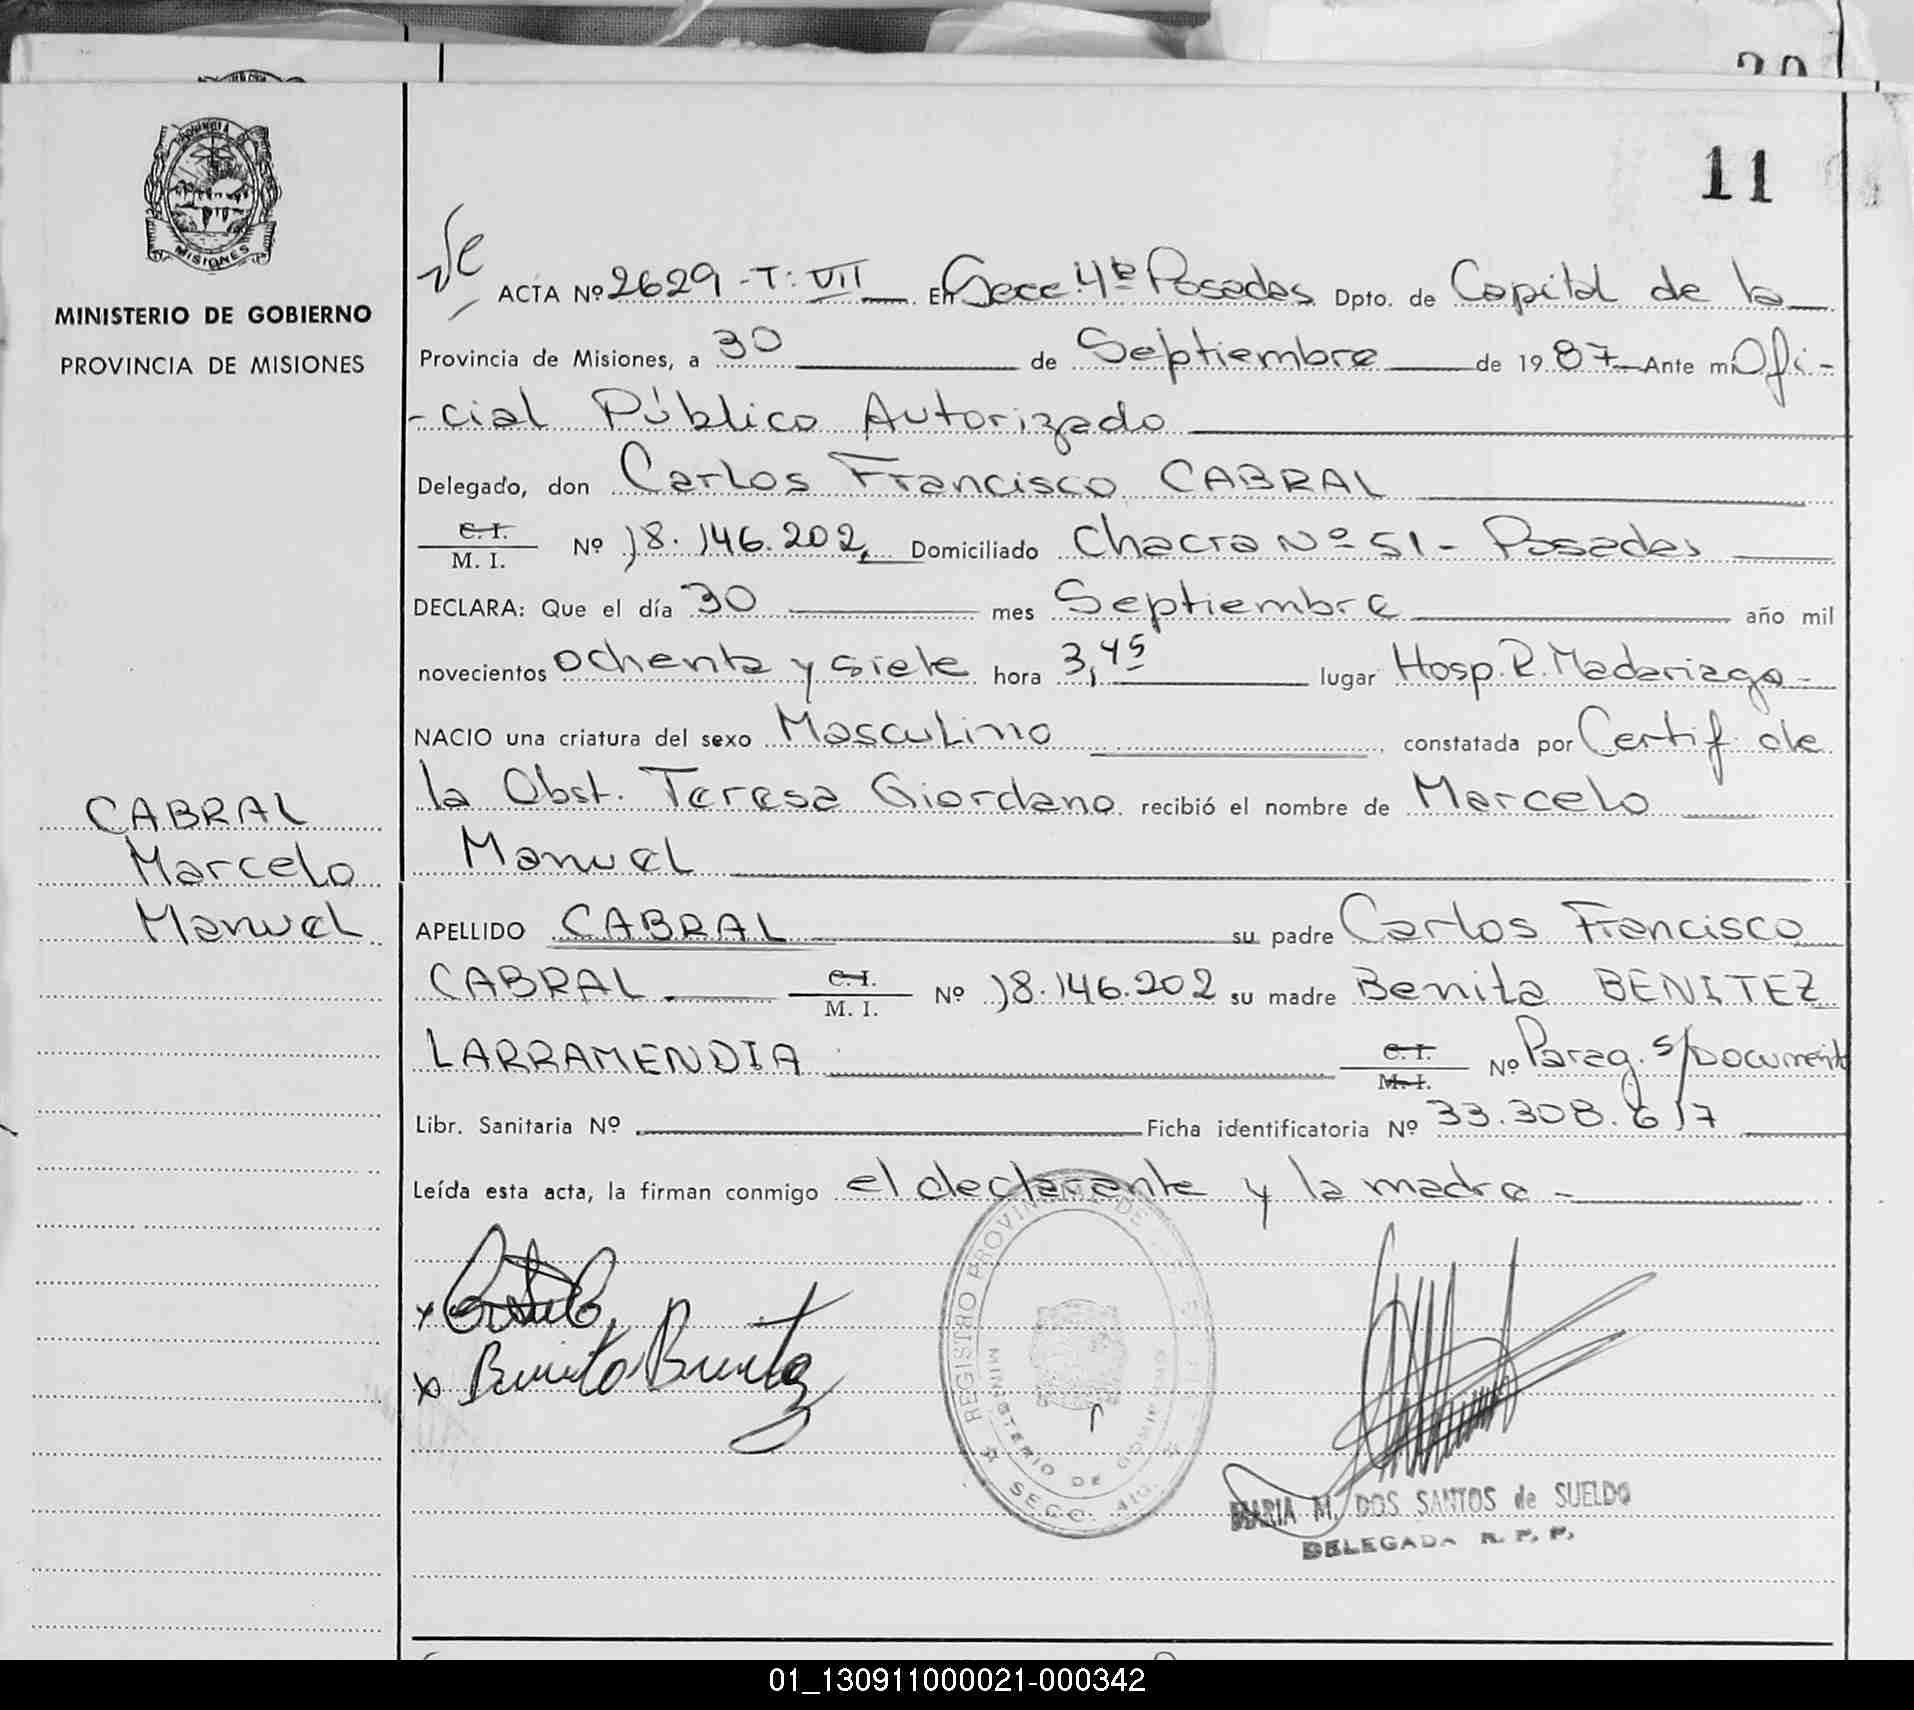 20
11
PROVINCIA DE
MISIONES
MINISTERIO DE GOBIERNO
PROVINCIA DE MISIONES
CABRAL
Marcelo
Manuel
ACTA Nº 2629 - T: VII En Secc 4ª Posadas Dpto. de Capital de la
Provincia de Misiones, a 30 de Septiembre de 1987 Ante mi Ofi-
-cial Público Autorizado
Delegado, don Carlos Francisco CABRAL
C. I.
M. I. Nº 18.146.202, Domiciliado Chacra Nº 51 - Posadas
DECLARA: Que el día 30 mes Septiembre año mil
novecientos ochenta y siete hora 3,45 lugar Hosp. R. Madariaga -
NACIO una criatura del sexo Masculino, constatada por Certif. de
la Obst. Teresa Giordano recibió el nombre de Marcelo
Manuel
APELLIDO CABRAL su padre Carlos Francisco
CABRAL. C. I.
M. I. Nº 18.146.202 su madre Benita BENITEZ
LARRAMENDIA C. I.
M. I. Nº Parag. s/Documento
Libr. Sanitaria Nº Ficha identificatoria Nº 33.308.617
Leída esta acta, la firman conmigo el declarante y la madre -
x
x Benita Benitez
REGISTRO PROVINCIAL DE
MINISTERIO DE GOBIERNO
SECC. 4ta.
MARIA M. DOS SANTOS de SUELDO
DELEGADA R. P. P.
01_130911000021-000342